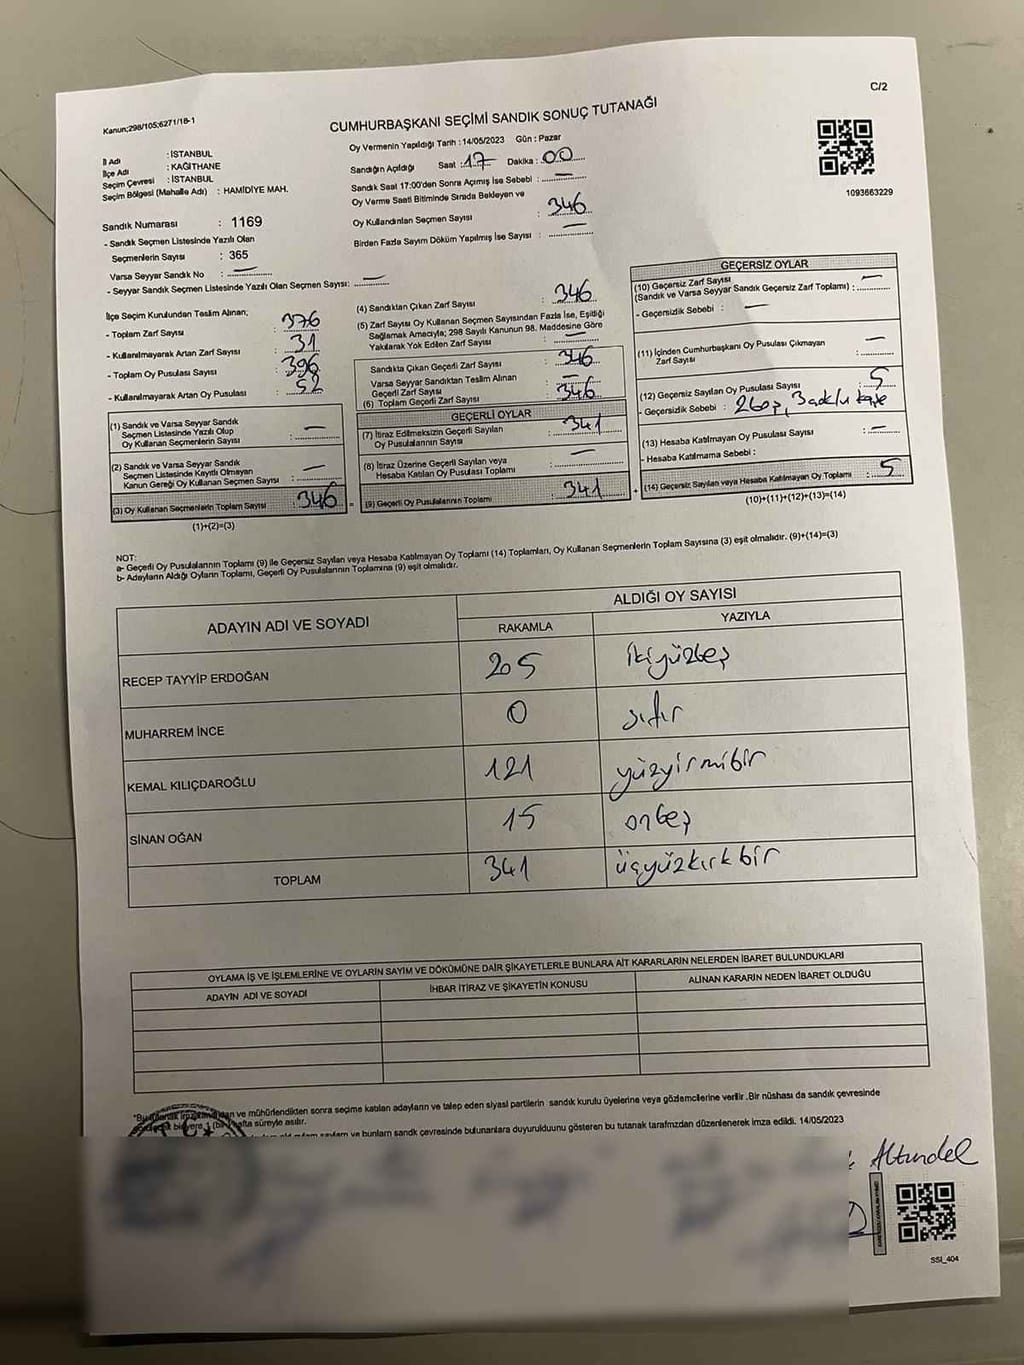 C/2
Kanun;298/105;6271/18-1
CUMHURBAŞKANI SEÇİMİ SANDIK SONUÇ TUTANAĞI
İl Adı : İSTANBUL
İlçe Adı : KAĞITHANE
Seçim Çevresi : İSTANBUL
Seçim Bölgesi (Mahalle Adı) : HAMİDİYE MAH.
Oy Vermenin Yapıldığı Tarih : 14/05/2023 Gün : Pazar
Sandığın Açıldığı Saat : 17 Dakika : 00
Sandık Saat 17:00'den Sonra Açılmış İse Sebebi : —
Oy Verme Saati Bitiminde Sırada Bekleyen ve
Oy Kullandırılan Seçmen Sayısı : 346
Birden Fazla Sayım Döküm Yapılmış İse Sayısı : —
1093663229
Sandık Numarası : 1169
- Sandık Seçmen Listesinde Yazılı Olan
Seçmenlerin Sayısı : 365
Varsa Seyyar Sandık No : —
- Seyyar Sandık Seçmen Listesinde Yazılı Olan Seçmen Sayısı: —
İlçe Seçim Kurulundan Teslim Alınan;
- Toplam Zarf Sayısı : 376
- Kullanılmayarak Artan Zarf Sayısı : 31
- Toplam Oy Pusulası Sayısı : 396
- Kullanılmayarak Artan Oy Pusulası : 52
(1) Sandık ve Varsa Seyyar Sandık
Seçmen Listesinde Yazılı Olup
Oy Kullanan Seçmenlerin Sayısı : —
(2) Sandık ve Varsa Seyyar Sandık
Seçmen Listesinde Kayıtlı Olmayan
Kanun Gereği Oy Kullanan Seçmen Sayısı : —
(3) Oy Kullanan Seçmenlerin Toplam Sayısı : 346
(1)+(2)=(3)
(4) Sandıktan Çıkan Zarf Sayısı : 346
(5) Zarf Sayısı Oy Kullanan Seçmen Sayısından Fazla İse, Eşitliği
Sağlamak Amacıyla; 298 Sayılı Kanunun 98. Maddesine Göre
Yakılarak Yok Edilen Zarf Sayısı : —
Sandıkta Çıkan Geçerli Zarf Sayısı : 346
Varsa Seyyar Sandıktan Teslim Alınan
Geçerli Zarf Sayısı : —
(6) Toplam Geçerli Zarf Sayısı : 346
GEÇERLİ OYLAR
(7) İtiraz Edilmeksizin Geçerli Sayılan
Oy Pusulalarının Sayısı : 341
(8) İtiraz Üzerine Geçerli Sayılan veya
Hesaba Katılan Oy Pusulası Toplamı : —
= (9) Geçerli Oy Pusulalarının Toplamı : 341 +
GEÇERSİZ OYLAR
(10) Geçersiz Zarf Sayısı
(Sandık ve Varsa Seyyar Sandık Geçersiz Zarf Toplamı) : —
- Geçersizlik Sebebi : —
(11) İçinden Cumhurbaşkanı Oy Pusulası Çıkmayan
Zarf Sayısı : —
(12) Geçersiz Sayılan Oy Pusulası Sayısı : 5
- Geçersizlik Sebebi :
(13) Hesaba Katılmayan Oy Pusulası Sayısı : —
- Hesaba Katılmama Sebebi :
(14) Geçersiz Sayılan veya Hesaba Katılmayan Oy Toplamı : 5
(10)+(11)+(12)+(13)=(14)
NOT:
a- Geçerli Oy Pusulalarının Toplamı (9) ile Geçersiz Sayılan veya Hesaba Katılmayan Oy Toplamı (14) Toplamları, Oy Kullanan Seçmenlerin Toplam Sayısına (3) eşit olmalıdır. (9)+(14)=(3)
b- Adayların Aldığı Oyların Toplamı, Geçerli Oy Pusulalarının Toplamına (9) eşit olmalıdır.
ADAYIN ADI VE SOYADI ALDIĞI OY SAYISI
RAKAMLA YAZIYLA
RECEP TAYYİP ERDOĞAN 205 ikiyüzbeş
MUHARREM İNCE 0 sıfır
KEMAL KILIÇDAROĞLU 121 yüzyirmibir
SİNAN OĞAN 15 onbeş
TOPLAM 341 üçyüzkırkbir
OYLAMA İŞ VE İŞLEMLERİNE VE OYLARIN SAYIM VE DÖKÜMÜNE DAİR ŞİKAYETLERLE BUNLARA AİT KARARLARIN NELERDEN İBARET BULUNDUKLARI
ADAYIN ADI VE SOYADI İHBAR İTİRAZ VE ŞİKAYETİN KONUSU ALINAN KARARIN NEDEN İBARET OLDUĞU
ve mühürlendikten sonra seçime katılan adayların ve talep eden siyasi partilerin sandık kurulu üyelerine veya gözlemcilerine verilir .Bir nüshası da sandık çevresinde
süreyle asılır.
ve bunların sandık çevresinde bulunanlara duyurulduunu gösteren bu tutanak tarafımızdan düzenlenerek imza edildi. 14/05/2023
Altundel
SSI_404